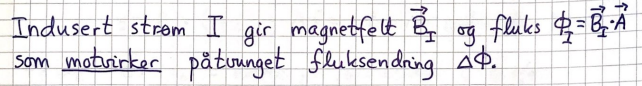 Indusert strøm I gir magnetfelt B⃗_I og fluks ϕ_I = B⃗_I · A⃗
som motvirker påtvunget fluksendring Δϕ.